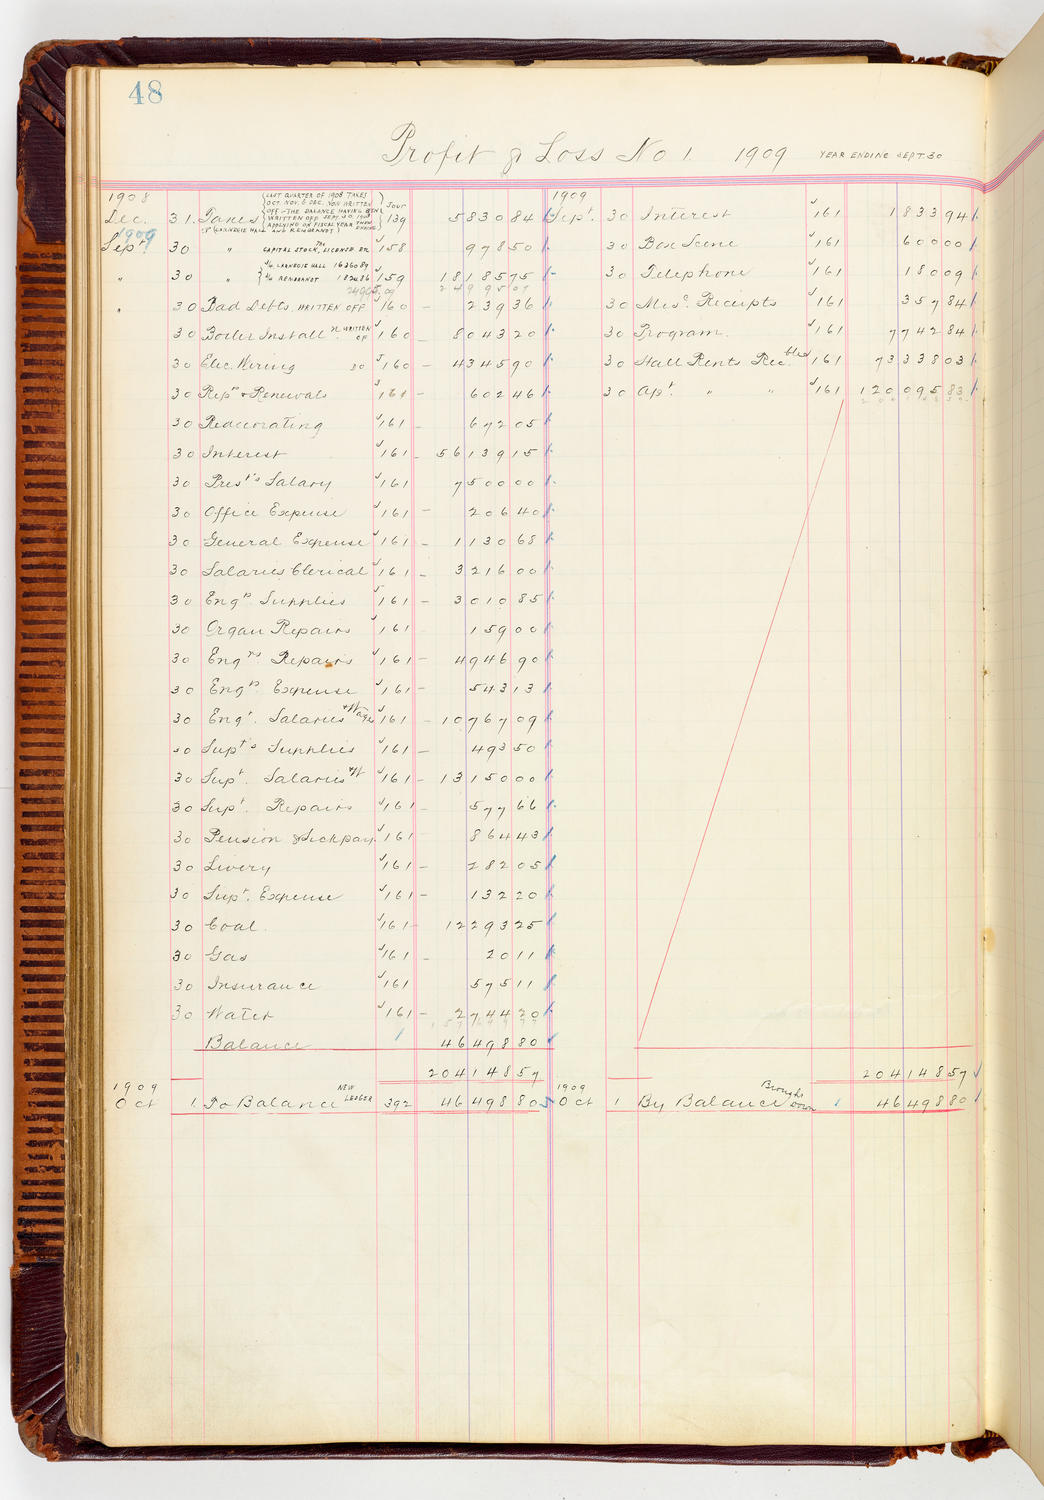 48
Profit & Loss No 1. 1909 YEAR ENDING SEPT 30
1908
Dec. 31. Taxes LAST QUARTER OF 1908 TAXES Jour 139 5830 84
OCT. NOV. & DEC. NON WRITTEN
OFF - THE BALANCE HAVING BEEN
WRITTEN OFF SEPT. 30 1908
APPLYING ON FISCAL YEAR THEN ENDING
CARNEGIE HALL AND REMBRANDT
1909
Sept. 30 " CAPITAL STOCK, LICENSE ETC J158 978 50
" 30 " J/4 CARNEGIE HALL 16360 89 J159 18185 75
J/4 REMBRANDT 1824 86
24995.09 24995 09
" 30 Bad Debts WRITTEN OFF J160 - 239 36
30 Boiler Install n. WRITTEN OF J160 - 8043 20
30 Elec. Wiring DO J160 - 4345 90
30 Reprs & Renewals J161 - 602 46
30 Redecorating J161 - 672 05
30 Interest J161 - 56139 15
30 Prest's Salary J161 7500 00
30 Office Expense J161 - 206 40
30 General Expense J161 - 1130 68
30 Salaries Clerical J161 - 3216 00
30 Engrs Supplies J161 - 3010 85
30 Organ Repairs J161 159 00
30 Engrs Repairs J161 - 4946 90
30 Engrs Expense J161 - 543 13
30 Engr. Salaries & Wages J161 - 10767 09
30 Supt's Supplies J161 - 493 50
30 Supt. Salaries & W J161 - 13150 00
30 Supt. Repairs J161 - 577 66
30 Pension & Sickpay J161 864 43
30 Livery J161 - 282 05
30 Supt. Expense J161 - 132 20
30 Coal. J161 - 12293 25
30 Gas J161 - 20 11
30 Insurance J161 575 11
30 Water J161 - 2744 20
Balance 46498 80
204148 57
1909
Oct 1. To Balance NEW LEDGER 392 46498 80
1909
Sept. 30 Interest J161 1833 94
30 Box Scene J161 600 00
30 Telephone J161 180 09
30 Misc. Receipts J161 357 84
30 Program. J161 7742 84
30 Hall Rents Rec.bles J161 73338 03
30 Apt " " J161 120095 83
204148 57
1909
Oct 1 By Balance Brought Down 46498 80